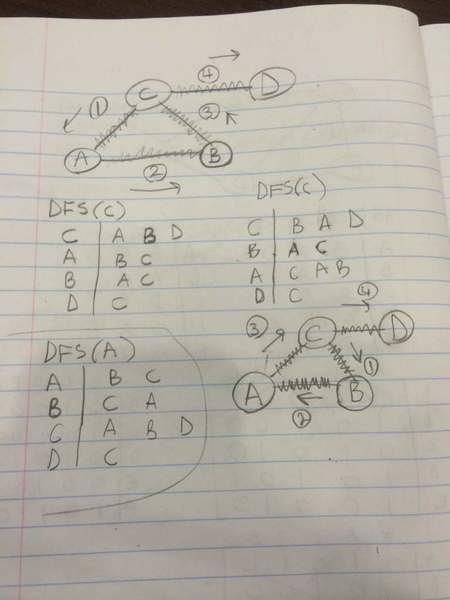 ④
① C D
③
A B
②
DFS(C)
C A B D
A B C
B A C
D C
DFS(C)
C B A D
B A C
A C A B
D C
④
③ C D
①
A B
②
DFS(A)
A B C
B C A
C A B D
D C